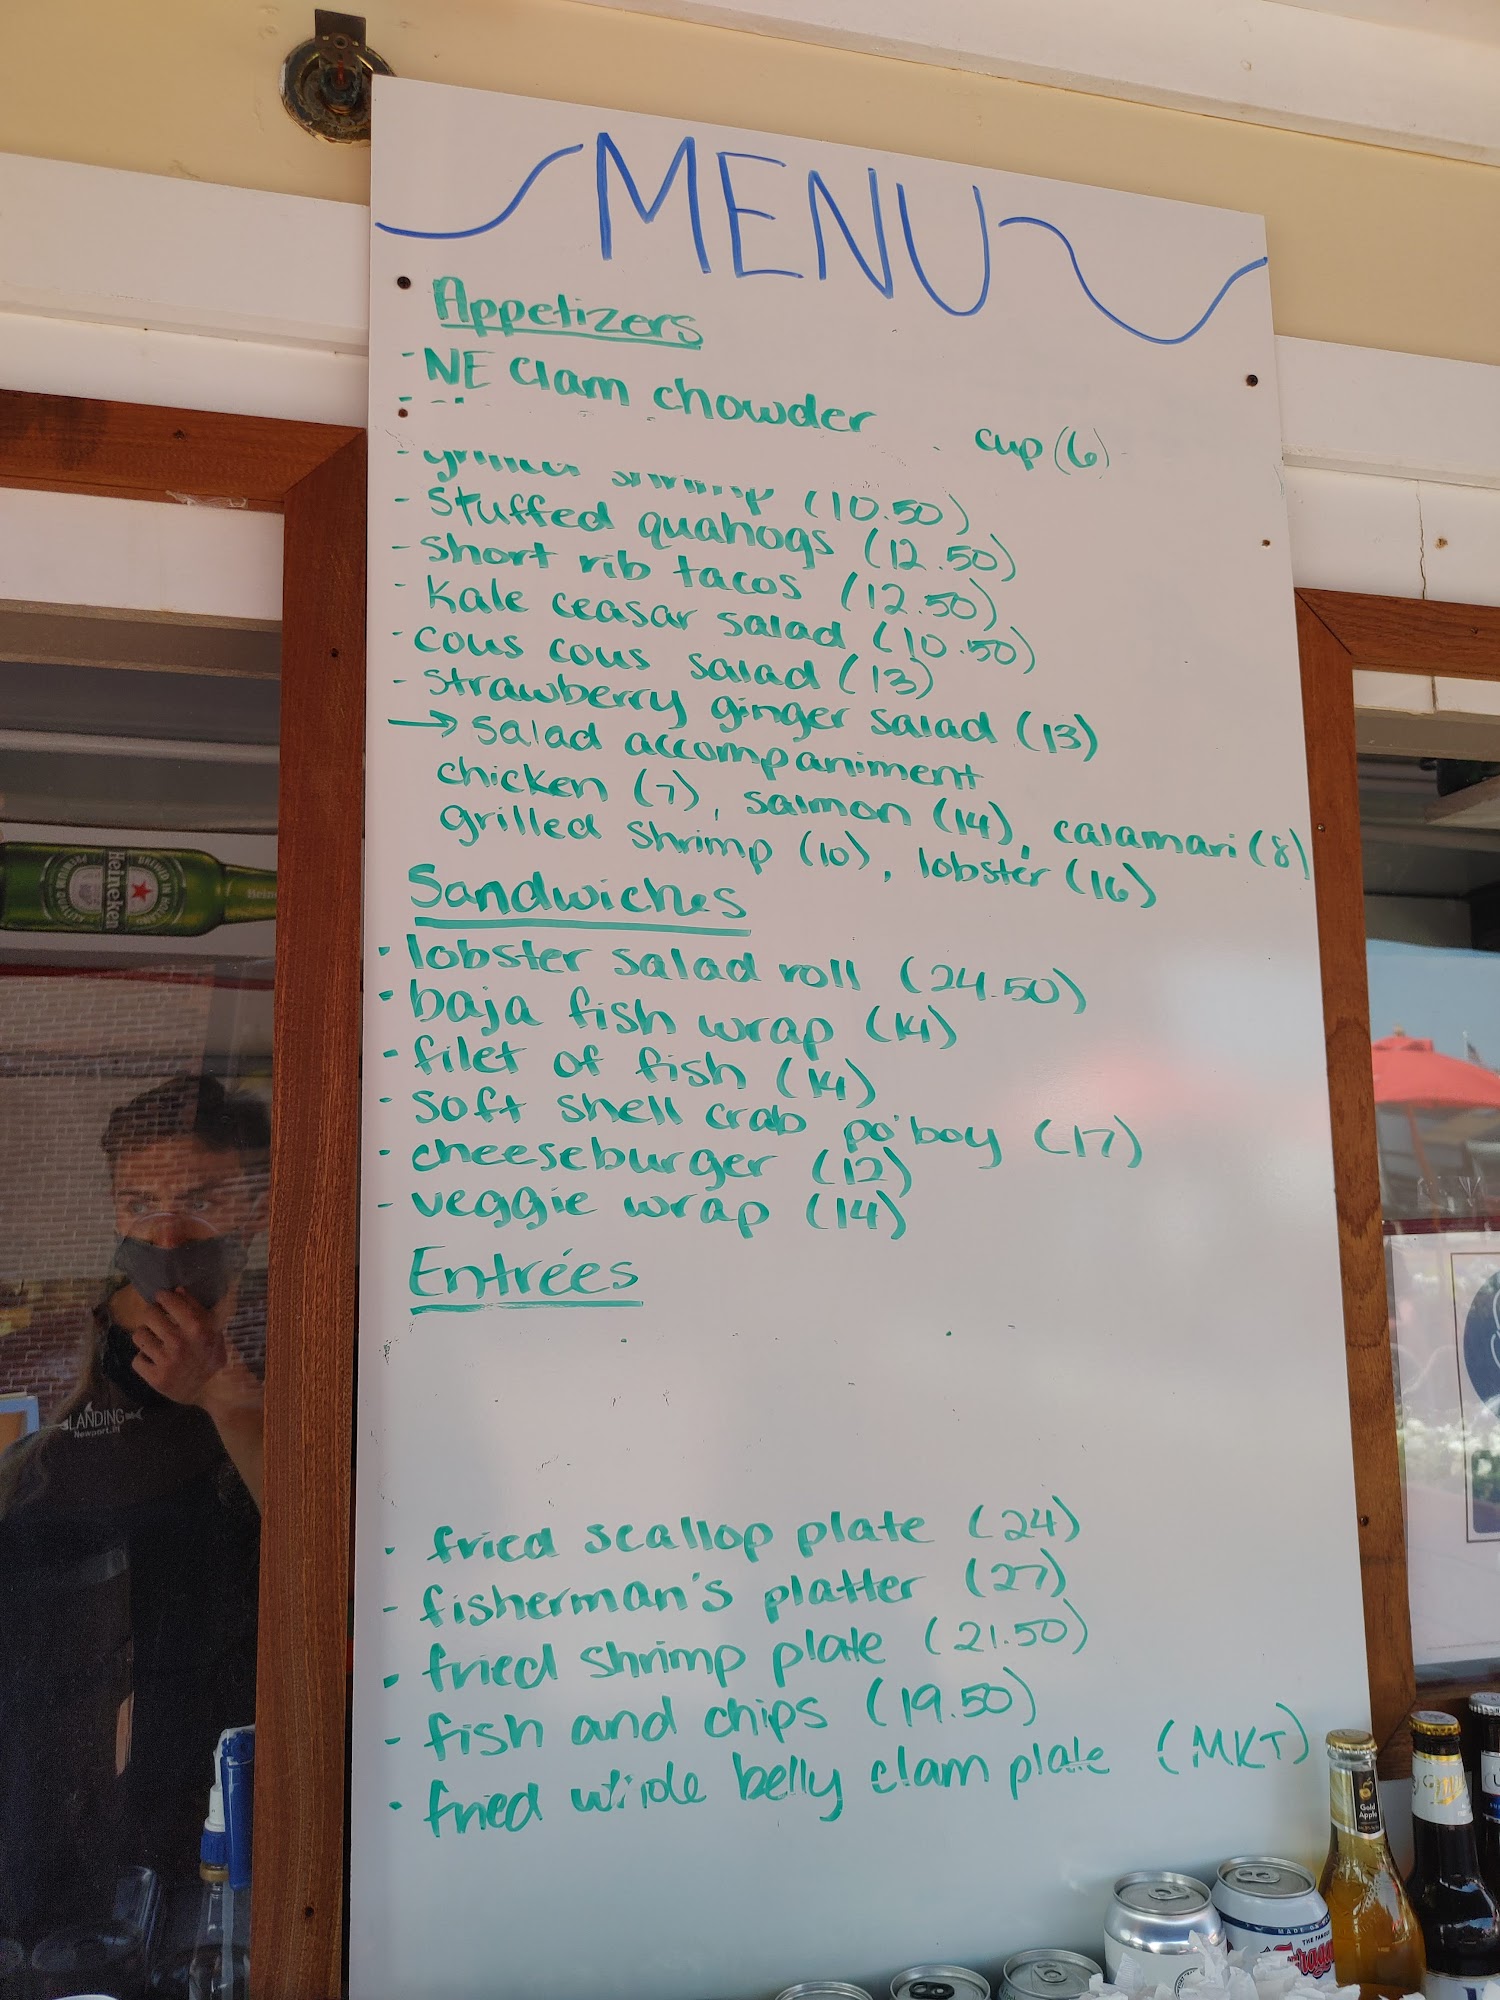 MENU
Appetizers
- NE Clam chowder cup (6)
- grilled shrimp (10.50)
- stuffed quahogs (12.50)
- short rib tacos (12.50)
- kale ceasar salad (10.50)
- cous cous salad (13)
- strawberry ginger salad (13)
→ salad accompaniment
chicken (7), salmon (14), calamari (8)
grilled shrimp (10), lobster (16)
Sandwiches
- lobster salad roll (24.50)
- baja fish wrap (14)
- filet of fish (14)
- soft shell crab po'boy (17)
- cheeseburger (12)
- veggie wrap (14)
Entrées
- fried scallop plate (24)
- fisherman's platter (27)
- fried shrimp plate (21.50)
- fish and chips (19.50)
- fried whole belly clam plate (MKT)
Heineken
LANDING
Newport, RI
Gold
Apple